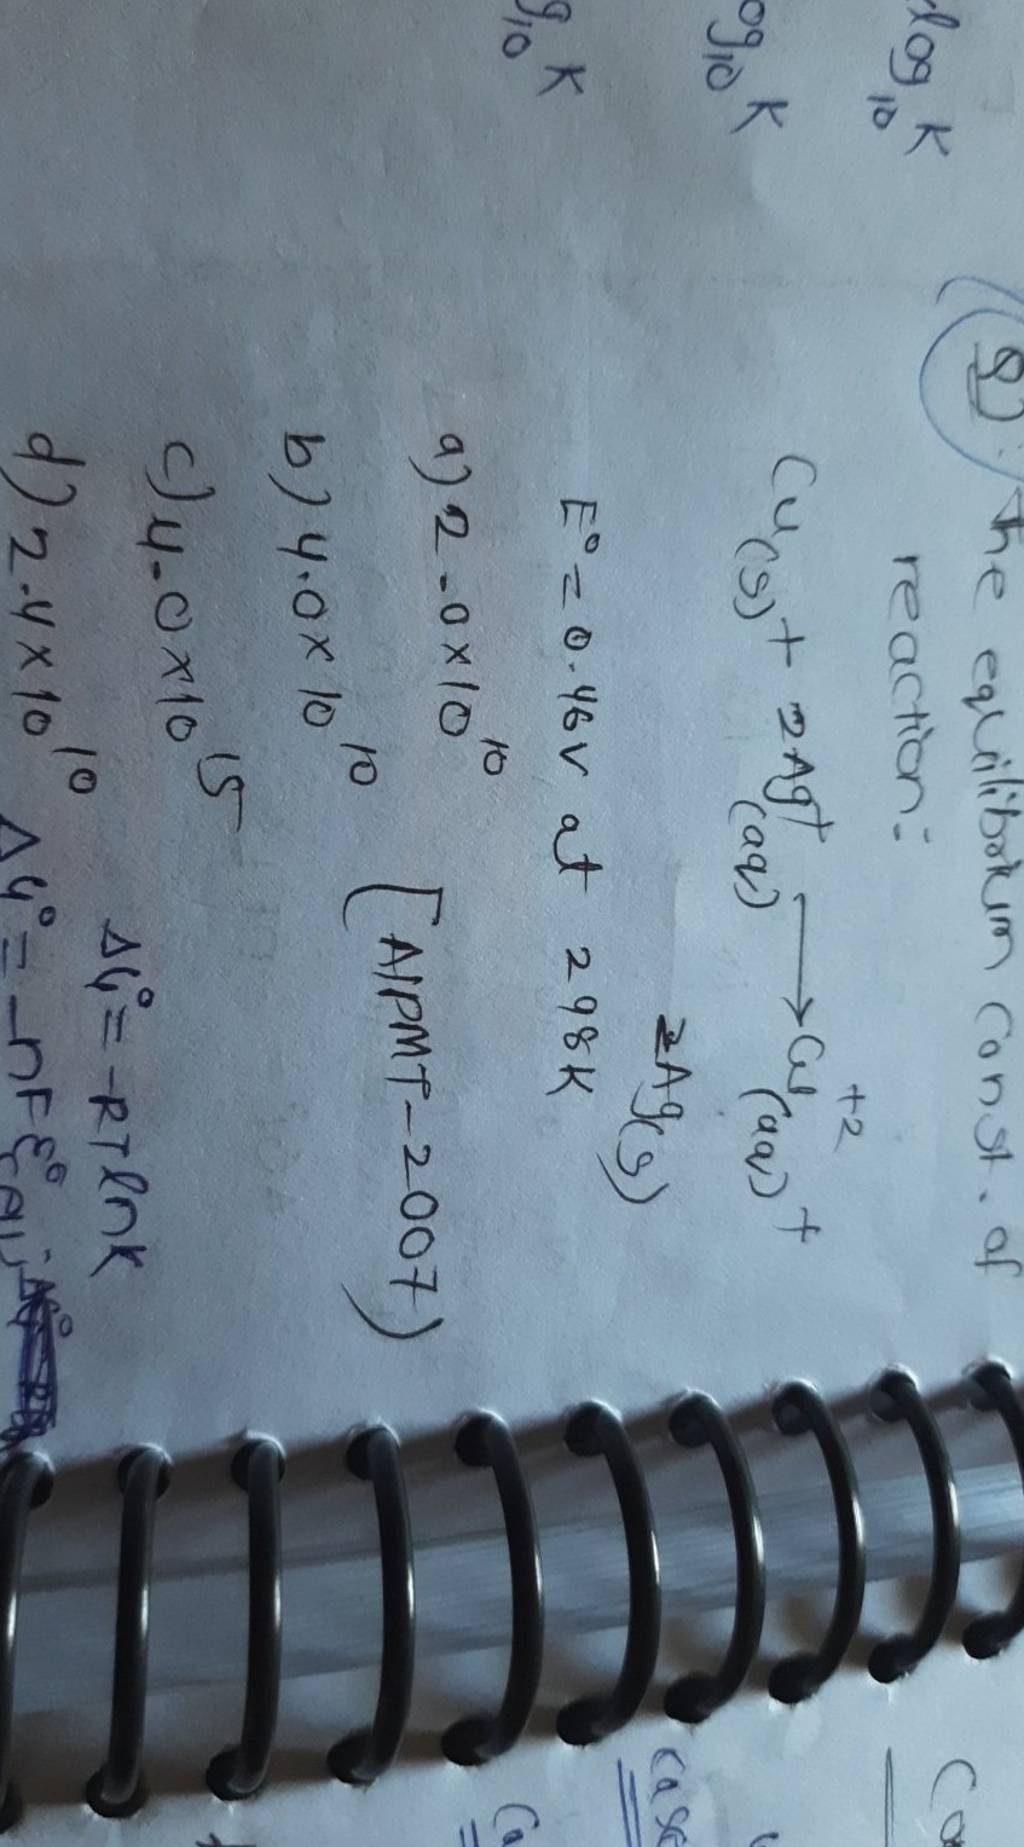 log₁₀ K
log₁₀ K
g₁₀ K
Q) The equilibrium const. of
reaction:
Cu(s) + 2Ag⁺(aq) ⟶ Cu⁺²(aq) +
2Ag(s)
E° = 0.46V at 298K
a) 2.0 × 10¹⁰
b) 4.0 × 10¹⁰
[AIPMT-2007)
c) 4.0 × 10¹⁵
ΔG° = -RT ln K
d) 2.4 × 10¹⁰
ΔG° = -nFE°
Case